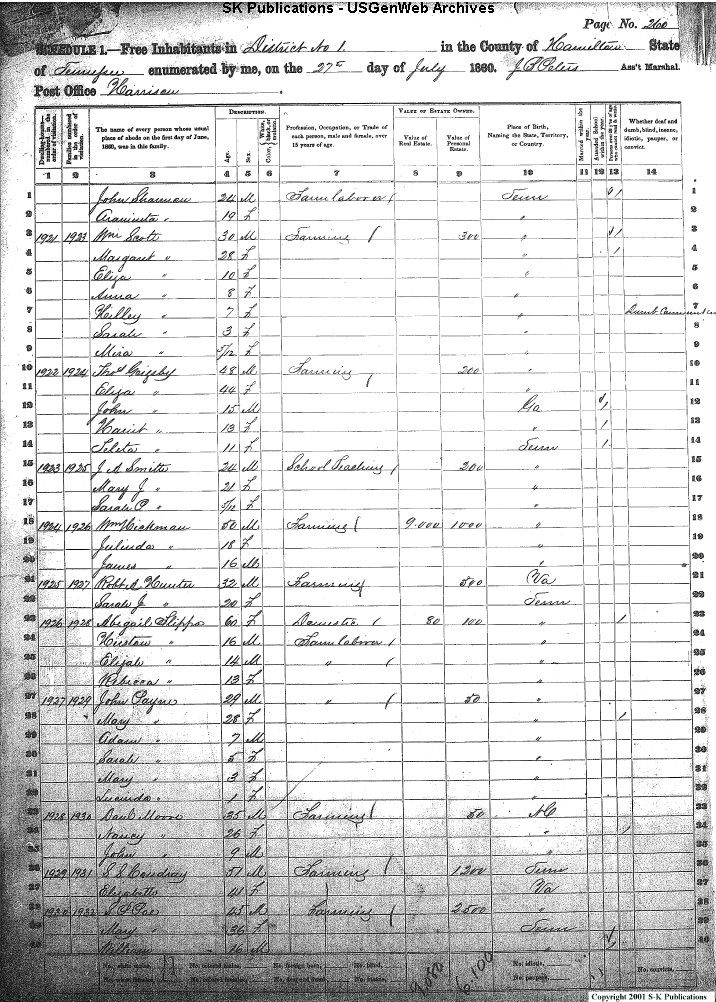 SK Publications - USGenWeb Archives
Page No. 260
SCHEDULE 1.—Free Inhabitants in District No 1. in the County of Hamilton State
of Tennessee enumerated by me, on the 27th day of July 1860. Ass't Marshal.
Post Office Harrison
DESCRIPTION. VALUE OF ESTATE OWNED.
Dwelling-houses—numbered in the order of visitation. Families numbered in the order of visitation. The name of every person whose usual place of abode on the first day of June, 1860, was in this family. Age. Sex. Color, White, black, or mulatto. Profession, Occupation, or Trade of each person, male and female, over 15 years of age. Value of Real Estate. Value of Personal Estate. Place of Birth, Naming the State, Territory, or Country. Married within the year. Attended School within the year. Whether deaf and dumb, blind, insane, idiotic, pauper, or convict.
1 2 3 4 5 6 7 8 9 10 11 12 13 14
1 John 24 M Farm laborer Tenn / 1
2 " 19 F " 2
3 1921 1923 Wm Scott 30 M Farming 300 " / 3
4 Margaret " 28 F " / 4
5 Eliza " 10 F " 5
6 Anna " 8 F " 6
7 " 7 F " Dumb 7
8 Sarah " 3 F " 8
9 Mira " 5/12 F " 9
10 1922 1924 Thos Grigsby 48 M Farming 200 " 10
11 Eliza " 44 F " 11
12 John " 15 M Ga / 12
13 " 13 F " / 13
14 " 11 F Tenn / 14
15 1923 1925 J A Smith 24 M School Teaching 200 " 15
16 Mary J " 21 F " 16
17 Sarah " F " 17
18 1924 1926 Wm Hickman 50 M Farming 9.000 1000 " 18
19 Julinda " 18 F " 19
20 James " 16 M " 20
21 1925 1927 Robt A Hunter 32 M Farming 500 Va 21
22 Sarah J " 20 F Tenn 22
23 1926 1928 Abigail 60 F Domestic 80 100 " / 23
24 " 16 M Farm laborer " 24
25 Elijah " 14 M " " 25
26 Rebecca " 13 F " 26
27 1927 1929 John Payne 29 M " 50 " 27
28 Mary " 28 F " / 28
29 Adam " 7 M " 29
30 Sarah " 5 F " 30
31 Mary " 3 F " 31
32 Lucinda " 1 F " 32
33 1928 1930 Moore 35 M Farming 50 NC 33
34 Nancy " 26 F " / 34
35 John " 9 M " 35
36 1929 1931 51 M Farming 1200 Tenn 36
37 Elizabeth 41 F Va 37
38 1930 1932 45 M Farming 2500 38
39 Mary " 36 F Tenn 39
40 William " 16 M " / 40
No. white males, No. colored males, No. foreign born, No. blind, No. idiotic, No. convicts,
No. white females, No. colored females, No. deaf and dumb, No. insane, No. paupers,
9.080 6.100
Copyright 2001 S-K Publications